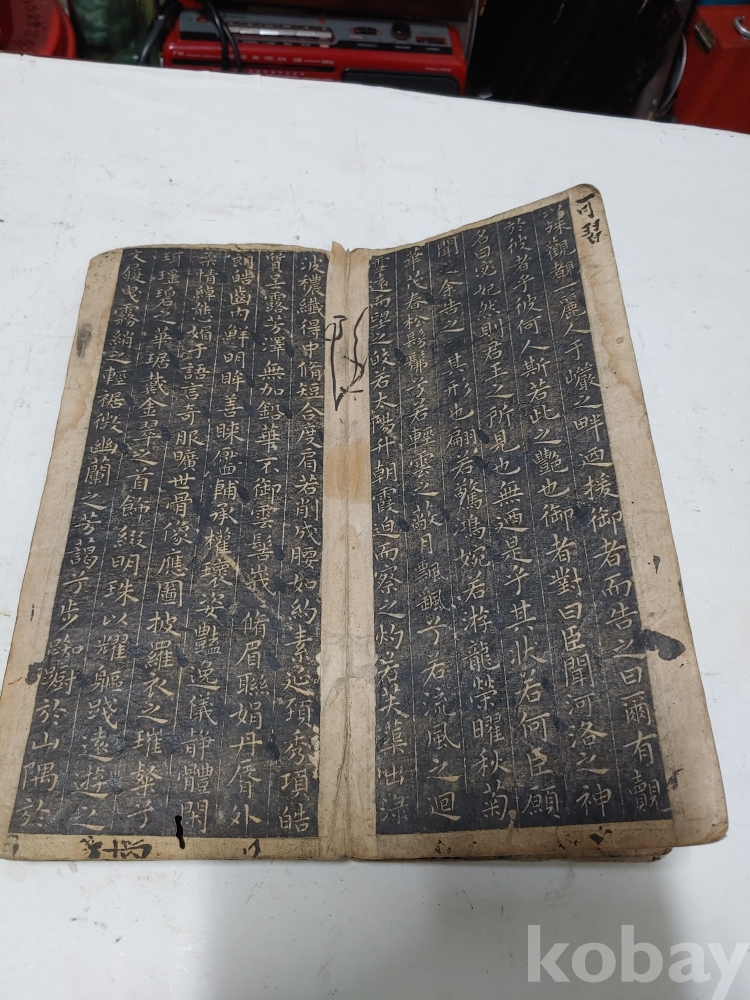 可習
以殊觀覩一麗人于巖之畔迺援御者而告之曰爾有覿
於彼者乎彼何人斯若此之艷也御者對曰臣聞河洛之神
名曰宓妃然則君王之所見也無迺是乎其狀若何臣願
聞之余告之 其形也翩若驚鴻婉若游龍榮曜秋菊
華茂春松髣髴兮若輕雲之蔽月飄颻兮若流風之迴
雪遠而望之皎若太陽升朝霞迫而察之灼若芙蕖出淥
波穠纖得中脩短合度肩若削成腰如約素延頸秀項皓
質呈露芳澤無加鉛華不御雲髻峩 脩眉聯娟丹脣外
朗皓齒內鮮明眸善睞靨輔承權瓌姿艷逸儀靜體閑
柔情綽態媚于語言奇服曠世骨像應圖披羅衣之璀粲兮
珥瑤碧之華琚戴金翠之首飾綴明珠以耀軀踐遠遊之
文履曳霧綃之輕裾微幽蘭之芳藹兮步踟躕於山隅於
kobay